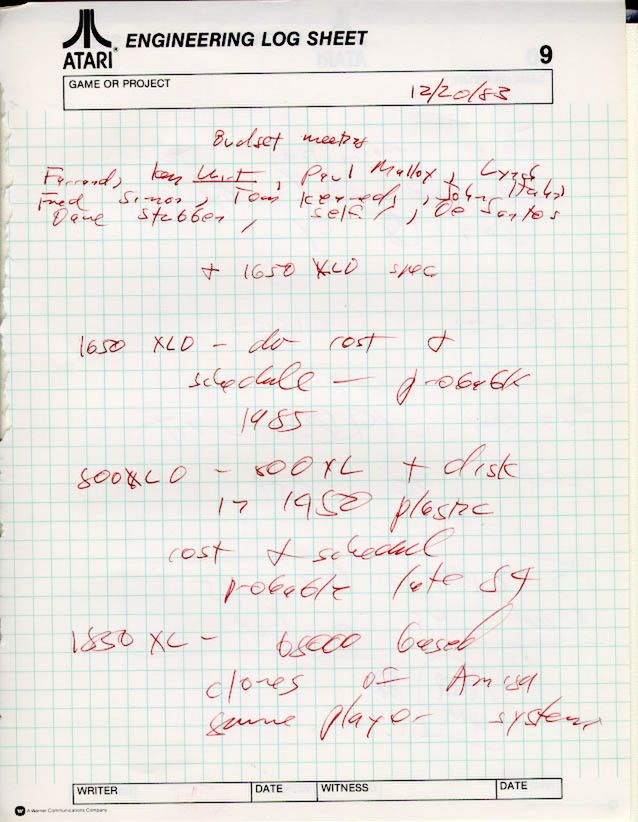 ATARI® ENGINEERING LOG SHEET
9
GAME OR PROJECT
12/20/83
Budset meeting
Ferrand, Ken, Paul Mallox,
Fred Simon, Tom, John
Dave Stubben, self, De Santos
+ 1650 XLD spec
1650 XLD - do cost &
schedule — probable
1985
800XLD - 800XL + disk
in 1450 plastic
cost & schedul
probable late 84
1850 XL - 68000 based
clones of Amiga
game player system
WRITER
DATE
WITNESS
DATE
A Warner Communications Company